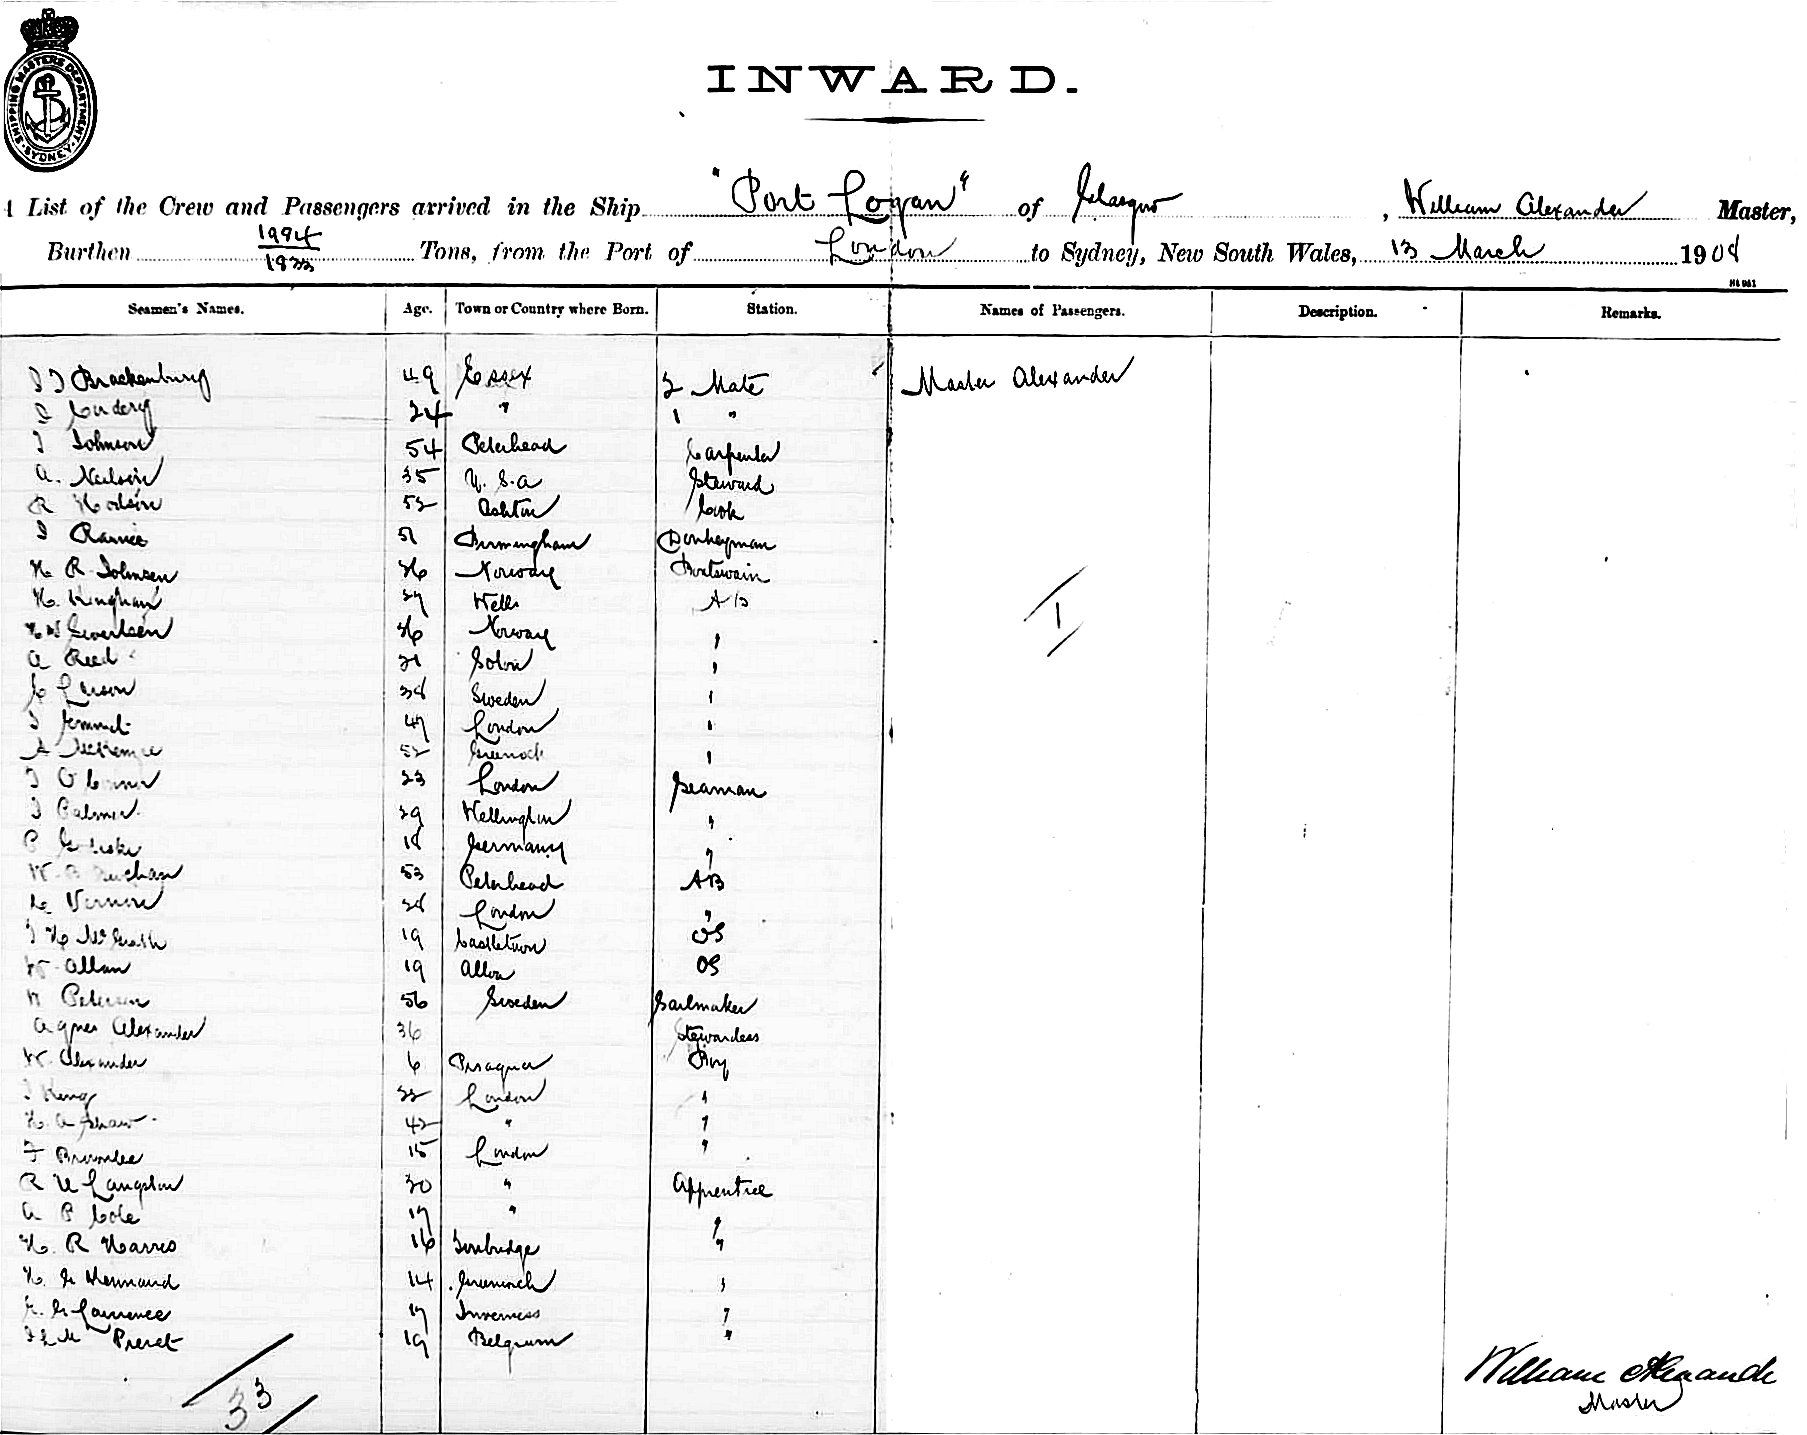 SHIPPING MASTERS DEPARTMENT SYDNEY
INWARD.
A List of the Crew and Passengers arrived in the Ship "Port Logan" of Glasgow, William Alexander Master,
Burthen 1994/1933 Tons, from the Port of London to Sydney, New South Wales, 13 March 1908
Seamen's Names. Age. Town or Country where Born. Station. Names of Passengers. Description. Remarks.
Brackenbury 49 Essex 2 Mate Master Alexander
Cordery 24 " 1 "
J Johnson 54 Peterhead Carpenter
A. Neilson 35 U.S.A Steward
R Hodson 52 Ashton Cook
51 Birmingham Donkeyman
H R Johnsen Norway Boatswain
H. Kingham 27 Wells AB
Sivertsen Norway "
A Reed 21 "
C Larson 38 Sweden "
47 London "
A McKenzie 52 Greenock "
J O'Connor 23 London Seaman
J Palmer 29 Wellington "
P 18 Germany "
W B Buchan 53 Peterhead AB
Vernon 28 London "
J H McGrath 19 Castletown OS
W Allan 19 Alloa OS
Petersen 56 Sweden Sailmaker
Agnes Alexander 36 Stewardess
W. Alexander 6 Pisagua Boy
J King 22 London "
H. A Shaw 42 " "
F Brownlee 15 London "
R U Langston 30 " Apprentice
A P Cole 17 " "
H. R Harris 16 Tonbridge "
H. G 14 Greenwich "
G. Lawrence 17 Inverness "
19 Belgium "
1
33
William Alexander
Master